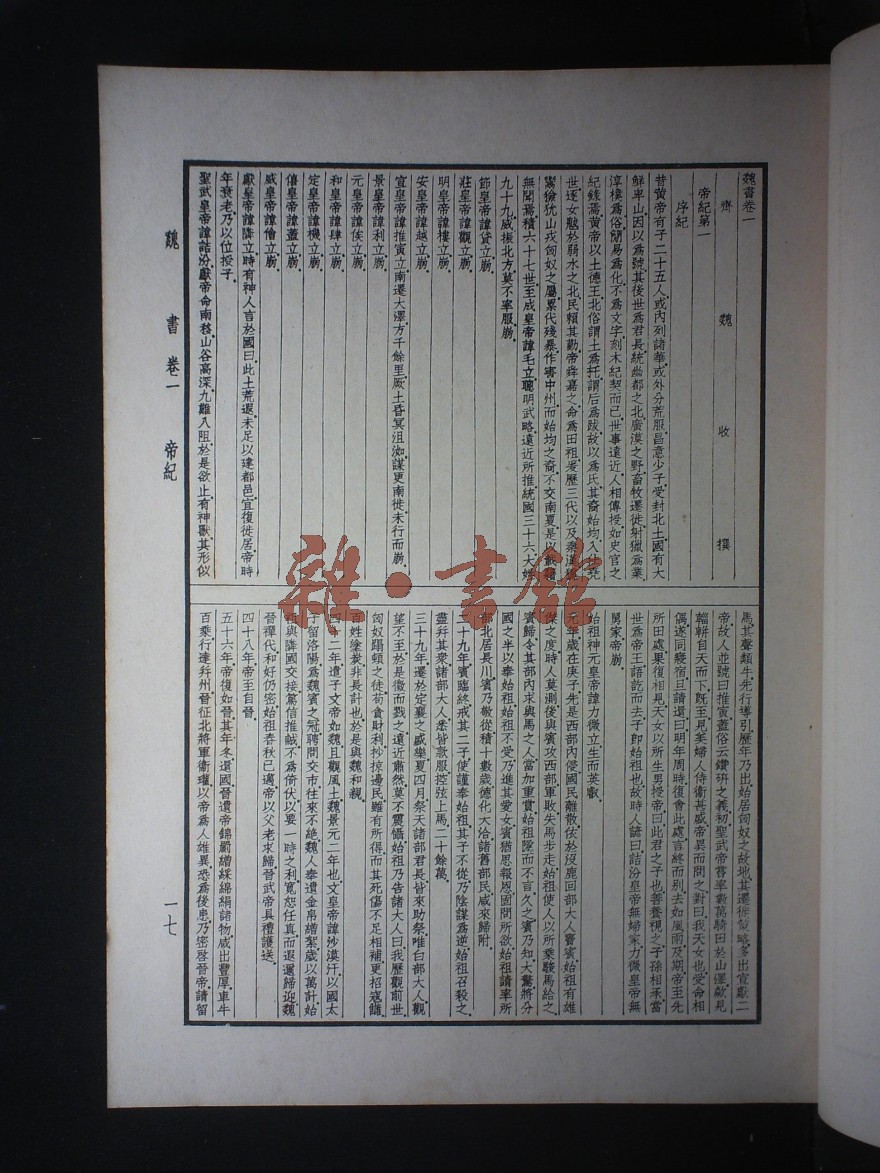 魏書卷一
齊魏收撰
帝紀第一
序紀
昔黃帝有子二十五人或內列諸華或外分荒服昌意少子受封北土國有大
鮮卑山因以爲號其後世爲君長統幽都之北廣漠之野畜牧遷徙射獵爲業
淳樸爲俗簡易爲化不爲文字刻木紀契而已世事遠近人相傳授如史官之
紀錄焉黃帝以土德王北俗謂土爲托謂后爲跋故以爲氏其裔始均入仕堯
世逐女魃於弱水之北民賴其勤帝舜嘉之命爲田祖爰歷三代以及秦漢
獫狁山戎匈奴之屬累代殘暴作害中州而始均之裔不交南夏是以載籍
無聞焉積六十七世至成皇帝諱毛立聰明武略遠近所推統國三十六大姓
九十九威振北方莫不率服崩
節皇帝諱貸立崩
莊皇帝諱觀立崩
明皇帝諱樓立崩
安皇帝諱越立崩
宣皇帝諱推寅立南遷大澤方千餘里厥土昏冥沮洳謀更南徙未行而崩
景皇帝諱利立崩
元皇帝諱俟立崩
和皇帝諱肆立崩
定皇帝諱機立崩
僖皇帝諱蓋立崩
威皇帝諱儈立崩
獻皇帝諱隣立時有神人言於國曰此土荒遐未足以建都邑宜復徙居帝時
年衰老乃以位授子
聖武皇帝諱詰汾獻帝命南移山谷高深九難八阻於是欲止有神獸其形似
馬其聲類牛先行導引歷年乃出始居匈奴之故地其遷徙策略多出宣獻二
帝故人並號曰推寅蓋俗云鑽研之義初聖武帝嘗率數萬騎田於山澤歘見
輜軿自天而下既至見美婦人侍衞甚盛帝異而問之對曰我天女也受命相
偶遂同寢宿旦請還曰明年周時復會此處言終而別去如風雨及期帝至先
所田處果復相見天女以所生男授帝曰此君之子也善養視之子孫相承當
世爲帝王語訖而去子卽始祖也故時人諺曰詰汾皇帝無婦家力微皇帝無
舅家帝崩
始祖神元皇帝諱力微立生而英叡
元年歲在庚子先是西部內侵國民離散依於沒鹿回部大人竇賓始祖有雄
傑之度時人莫測後與賓攻西部軍敗失馬步走始祖使人以所乘駿馬給之
賓歸令其部內求與馬之人當加重賞始祖隱而不言久之賓乃知大驚將分
國之半以奉始祖始祖不受乃進其愛女賓猶思報恩固問所欲始祖請率所
部北居長川賓乃敬從積十數歲德化大洽諸舊部民咸來歸附
二十九年賓臨終戒其二子使謹奉始祖其子不從乃陰謀爲逆始祖召殺之
盡幷其衆諸部大人悉皆款服控弦上馬二十餘萬
三十九年遷於定襄之盛樂夏四月祭天諸部君長皆來助祭唯白部大人觀
望不至於是徵而戮之遠近肅然莫不震懾始祖乃告諸大人曰我歷觀前世
匈奴蹋頓之徒苟貪財利抄掠邊民雖有所得而其死傷不足相補更招寇讎
百姓塗炭非長計也於是與魏和親
四十二年遣子文帝如魏且觀風土魏景元二年也文皇帝諱沙漠汗以國太
子留洛陽爲魏賓之冠聘問交市往來不絕魏人奉遺金帛繒絮歲以萬計始
祖與隣國交接篤信推誠不爲倚伏以要一時之利寬恕任眞而遐邇歸迎魏
晉禪代和好仍密始祖春秋已邁帝以父老求歸晉武帝具禮護送
四十八年帝至自晉
五十六年帝復如晉其年冬還國晉遺帝錦罽繒綵綿絹諸物咸出豐厚車牛
百乘行達幷州晉征北將軍衞瓘以帝爲人雄異恐爲後患乃密啓晉帝請留
魏書卷一 帝紀
一七
雜·書館